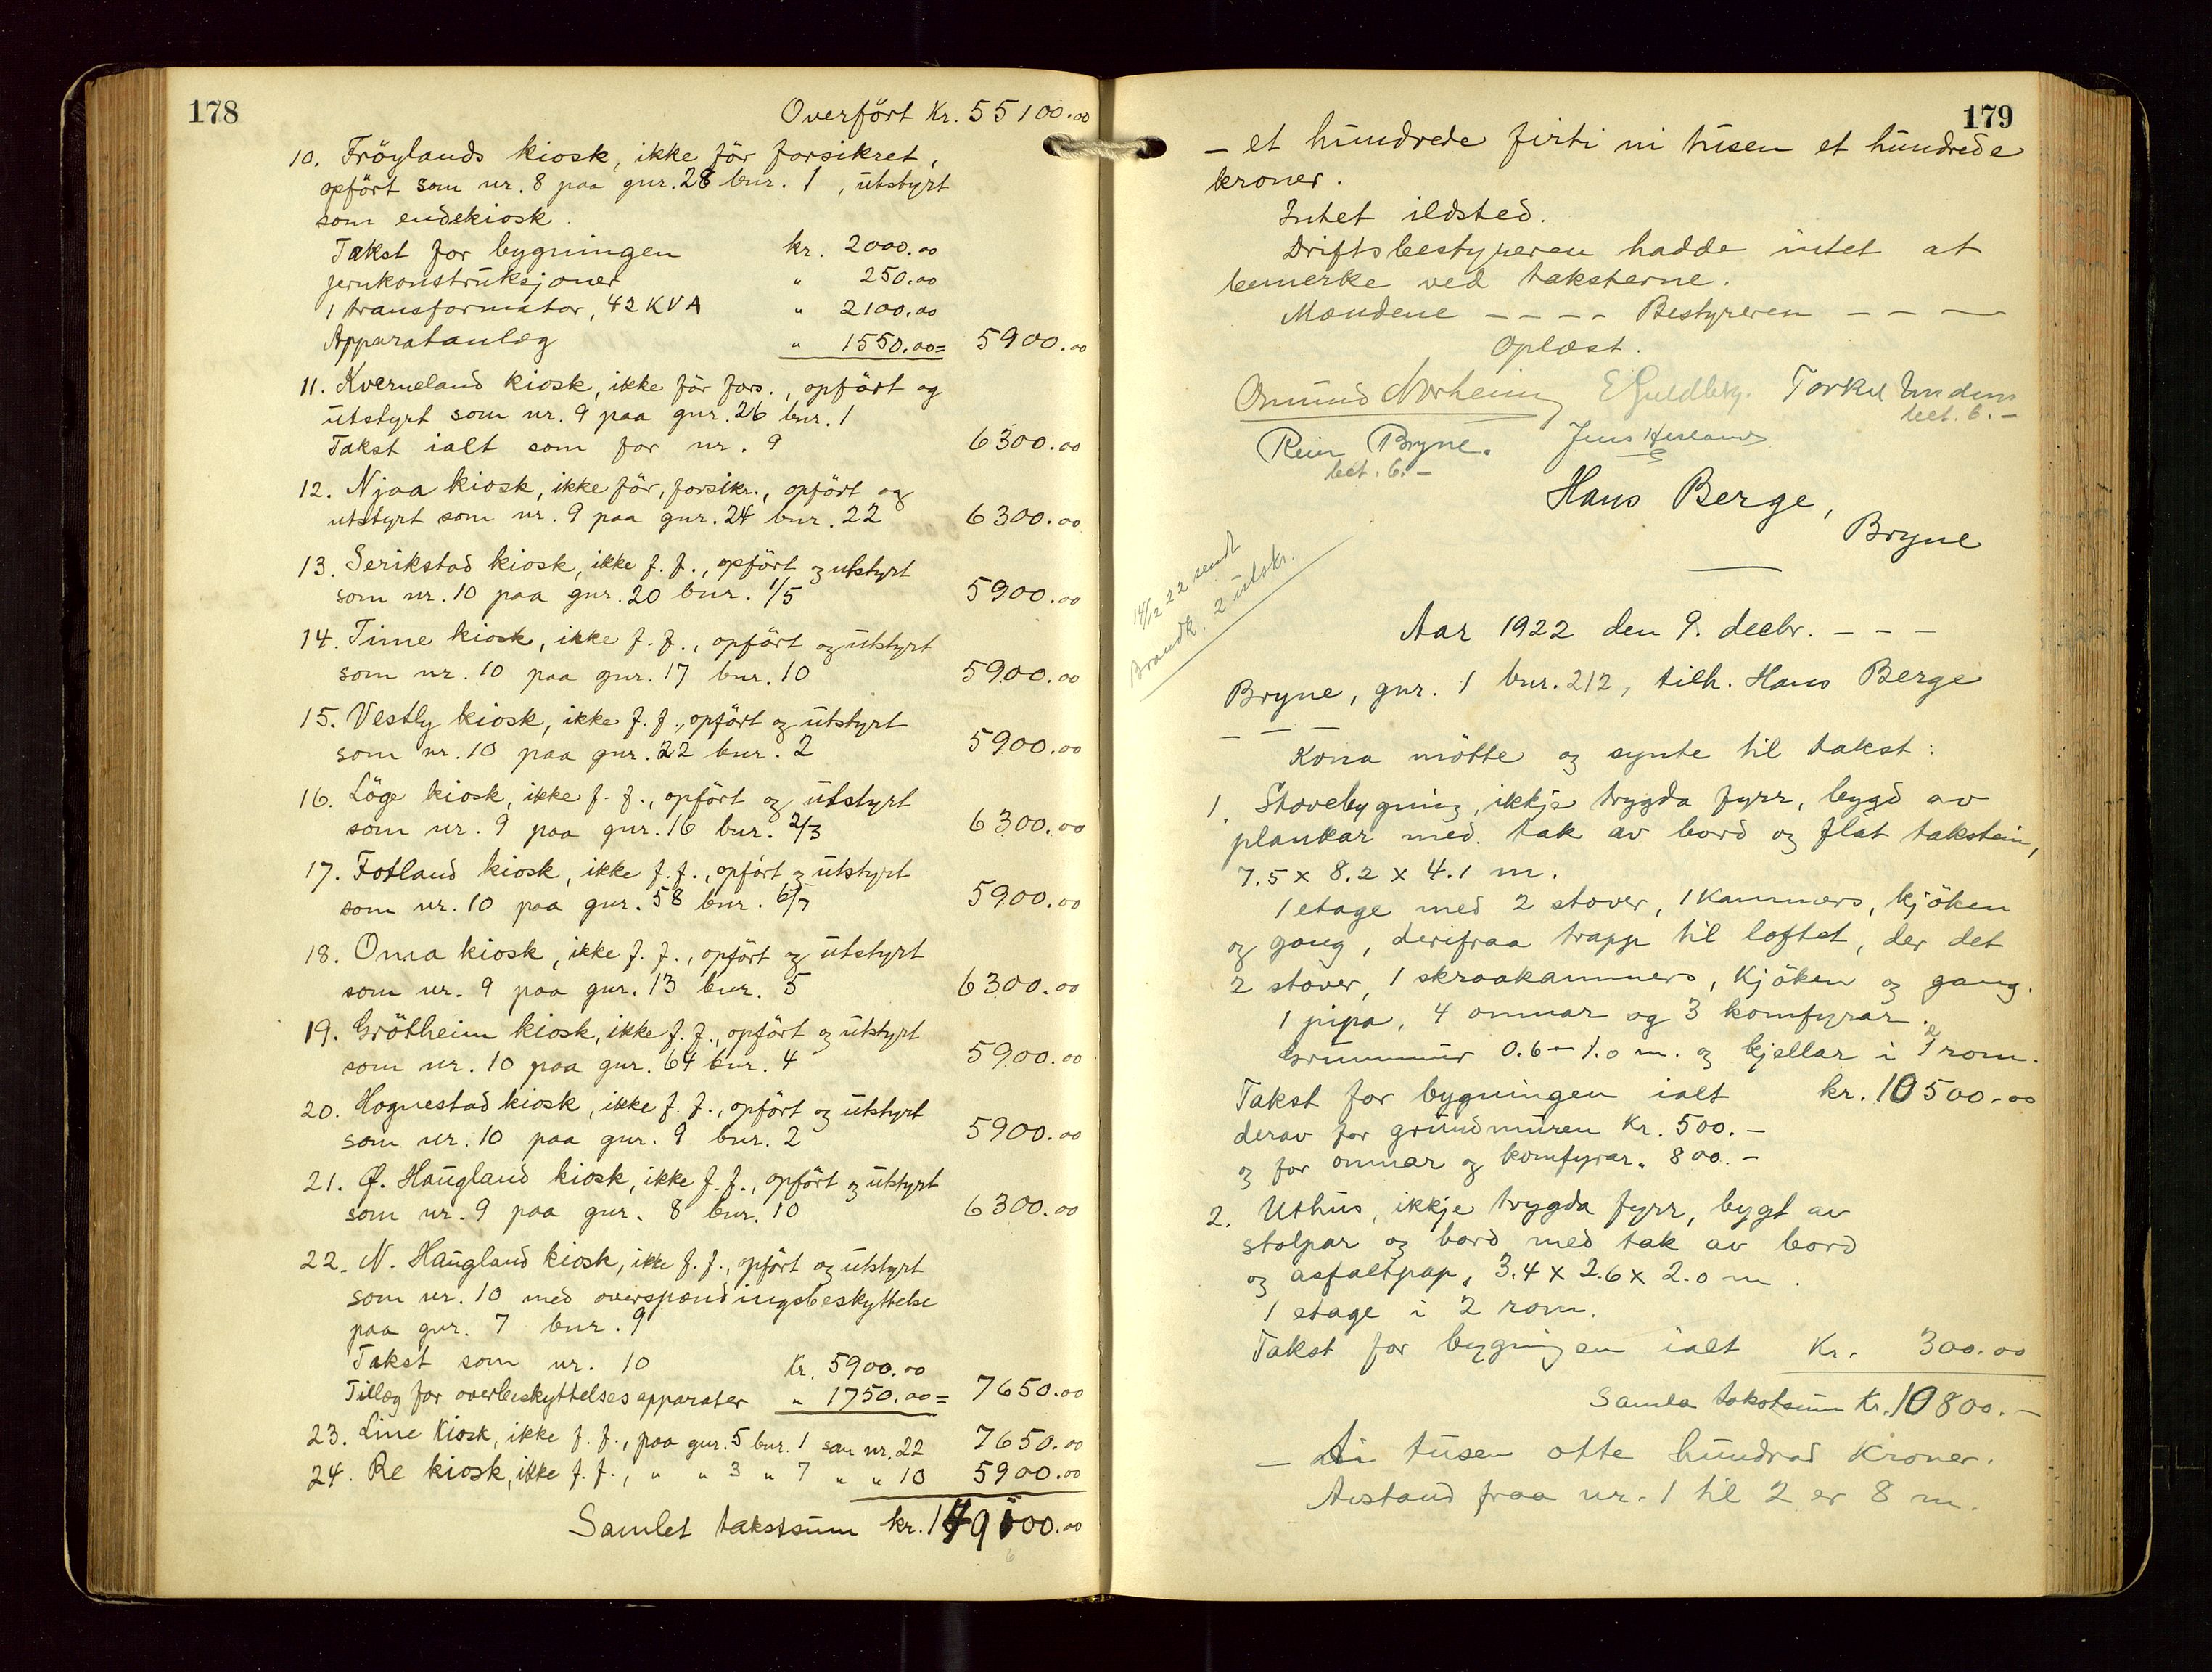 178
Overført Kr. 55100.00
10. Frøylands kiosk, ikke før forsikret,
opført som nr. 8 paa gnr. 28 bnr. 1, utstyrt
som endekiosk.
Takst for bygningen kr. 2000.00
jernkonstruksjoner " 250.00
1 transformator, 42 KVA " 2100.00
Apparatanlæg " 1550.00= 5900.00
11. Kverneland kiosk, ikke før fors., opført og
utstyrt som nr. 9 paa gnr. 26 bnr. 1
Takst ialt som for nr. 9 6300.00
12. Njaa kiosk, ikke før, forsikr., opført og
utstyrt som nr. 9 paa gnr. 24 bnr. 22 6300.00
13. Serikstad kiosk, ikke f. f., opført og utstyrt
som nr. 10 paa gnr. 20 bnr. 1/5 5900.00
14. Time kiosk, ikke f. f., opført og utstyrt
som nr. 10 paa gnr. 17 bnr. 10 5900.00
15. Vestly kiosk, ikke f. f., opført og utstyrt
som nr. 10 paa gnr. 22 bnr. 2 5900.00
16. Løge kiosk, ikke f. f., opført og utstyrt
som nr. 9 paa gnr. 16 bnr. 2/3 6300.00
17. Fotland kiosk, ikke f. f., opført og utstyrt
som nr. 10 paa gnr. 58 bnr. 6/7 5900.00
18. Oma kiosk, ikke f. f., opført og utstyrt
som nr. 9 paa gnr. 13 bnr. 5 6300.00
19. Grøtheim kiosk, ikke f. f., opført og utstyrt
som nr. 10 paa gnr. 64 bnr. 4 5900.00
20. Hognestad kiosk, ikke f. f., opført og utstyrt
som nr. 10 paa gnr. 9 bnr. 2 5900.00
21. Haugland kiosk, ikke f. f., opført og utstyrt
som nr. 9 paa gnr. 8 bnr. 10 6300.00
22. N. Haugland kiosk, ikke f. f., opført og utstyrt
som nr. 10 med overspændingsbeskyttelse
paa gnr. 7 bnr. 9
Takst som nr. 10 Kr. 5900.00
Tillæg for overbeskyttelsesapparater " 1750.00= 7650.00
23. Line Kiosk, ikke f. f., paa gnr. 5 bnr. 1 som nr. 22 7650.00
24. Re kiosk, ikke f. f., " " 3 " 7 " " 10 5900.00
Samlet takstsum kr. 149100.00
179
– et hundrede firti ni tusen et hundrede
kroner.
Intet ildsted.
Driftsbestyreren hadde intet at
bemerke ved taksterne.
Mændene – – – – Bestyreren – – –
Oplæst.
Osmund Norheim E Guldbg. Torkel
bet. 6.–
Reier Bryne.
bet. 6.–
Hans Berge,
Bryne
14/12 22 sendt
Brandk. 2 utskr.
Aar 1922 den 9. decbr. – – –
Bryne, gnr. 1 bnr. 212, tilh. Hans Berge
– – –
Kona møtte og synte til takst:
1. Stovebygning, ikkje trygda fyrr, bygd av
plankar med tak av bord og flat takstein,
7.5 x 8.2 x 4.1 m.
1 etage med 2 stover, 1 Kammers, kjøken
og gang, derifraa trapp til loftet, der det
2 stover, 1 skraakammers, Kjøken og gang.
1 pipa, 4 omnar og 3 komfyrar.
Grunnmur 0.6–1.0 m. og kjellar i 2 rom.
Takst for bygningen ialt kr. 10500.00
derav for grundmuren Kr. 500.–
og for omnar og komfyrar " 800.–
2. Uthus, ikkje trygda fyrr, bygt av
stolpar og bord med tak av bord
og asfaltpap, 3.4 x 2.6 x 2.0 m.
1 etage i 2 rom.
Takst for bygningen ialt Kr. 300.00
Samla takstsum Kr. 10800.–
– ti tusen otte hundrad Kroner.
Avstand fraa nr. 1 til 2 er 8 m.